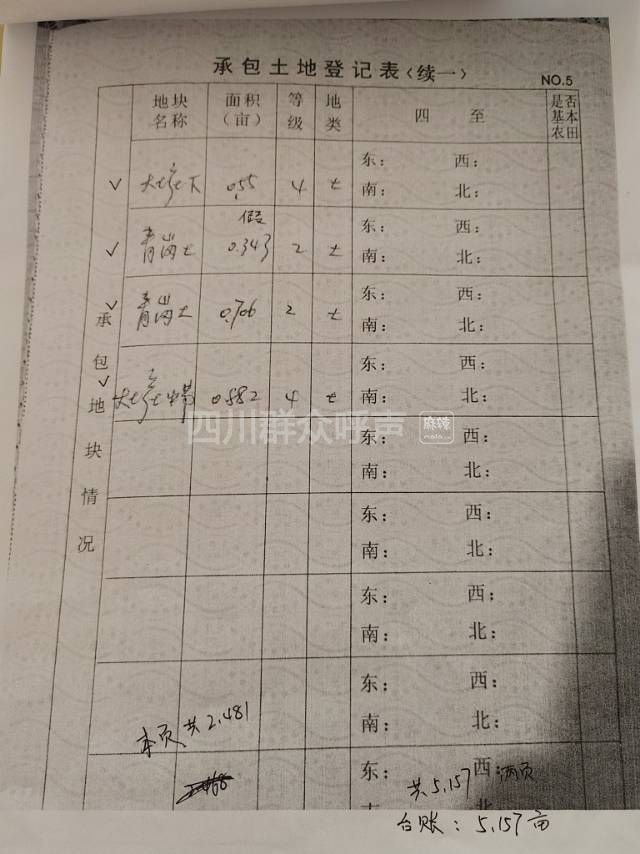 承包土地登记表〈续一〉
NO.5
地块名称 面积（亩） 等级 地类 四至 是否基本农田
承包地块情况
✓ 0.55 4 土 东： 西：
南： 北：
✓ 青岗土 0.343 2 土 东： 西：
南： 北：
✓ 青岗土 0.706 2 土 东： 西：
南： 北：
✓ 0.882 4 土 东： 西：
南： 北：
四川群众呼声 麻辣
东： 西：
南： 北：
东： 西：
南： 北：
东： 西：
南： 北：
东： 西：
南： 北：
本页共2.481
东： 西：
共5.157 两页
台账：5.157亩